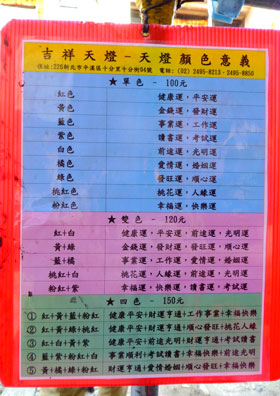 吉祥天燈－天燈顏色意義
住址:226新北市平溪區十分里十分街94號 電話:(02) 2495-8213、2495-8850
★ 單色 - 100元
紅色 健康運，平安運
黃色 金錢運，發財運
藍色 事業運，工作運
紫色 讀書運，考試運
白色 前途運，光明運
橘色 愛情運，婚姻運
綠色 發旺運，順心運
桃紅色 桃花運，人緣運
粉紅色 幸福運，快樂運
★ 雙色 - 120元
紅+白 健康運，平安運，前途運，光明運
黃+綠 金錢運，發財運，發旺運，順心運
藍+橘 事業運，工作運，愛情運，婚姻運
桃紅+白 桃花運，人緣運，前途運，光明運
粉紅+紫 幸福運，快樂運，讀書運，考試運
★ 四色 - 150元
①紅+黃+藍+粉紅 健康平安+財運亨通+工作事業+幸福快樂
②紅+黃+綠+桃紅 健康平安+財運亨通+順心發旺+桃花人緣
③紅+白+黃+紫 健康平安+前途光明+財運亨通+考試讀書
④藍+紫+粉紅+白 事業順利+考試讀書+幸福快樂+前途光明
⑤黃+橘+綠+粉紅 財運亨通+愛情婚姻+順心發旺+幸福快樂